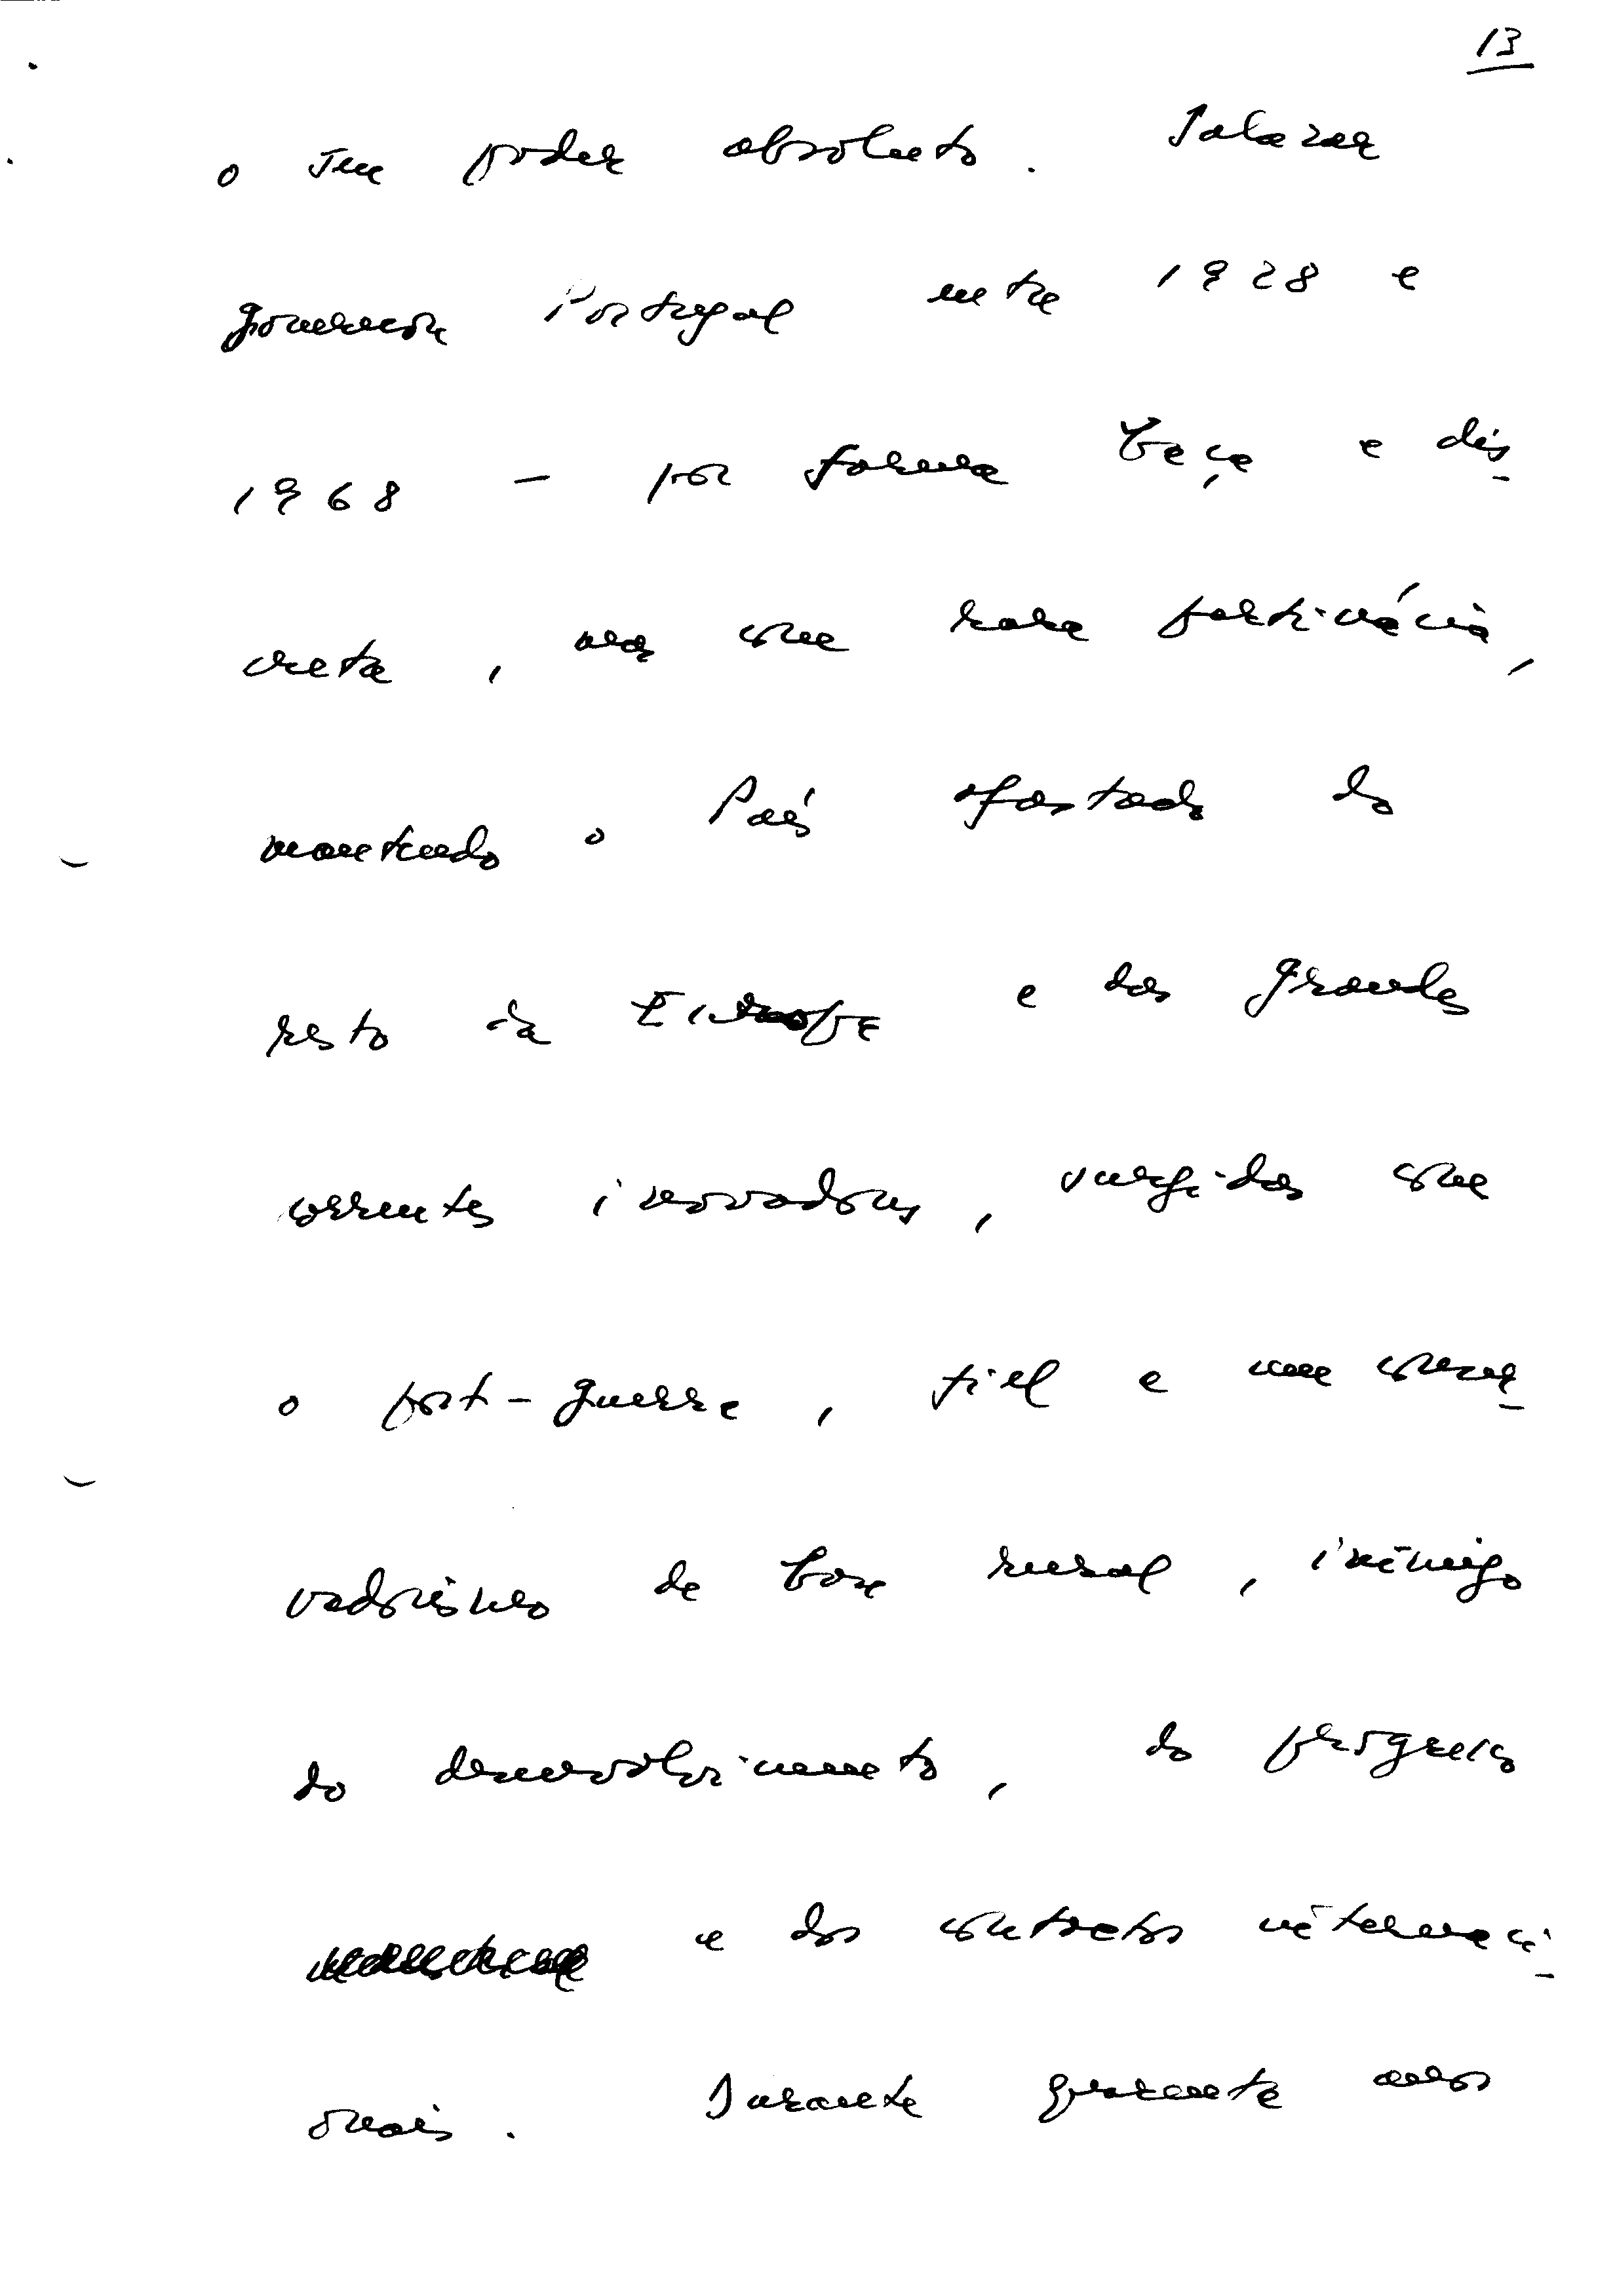 13
o seu poder absoluto. Salazar
governou Portugal entre 1928 e
1968 - por forma baça e dis-
creta, mas com rara pertinácia,
mantendo o País afastado do
resto da Europa e das grandes
correntes inovadoras, surgidas com
o post-guerra, fiel a um conser-
vadorismo de base rural, inimigo
do desenvolvimento, do progresso
e dos contactos internaci-
onais. Durante quarenta anos